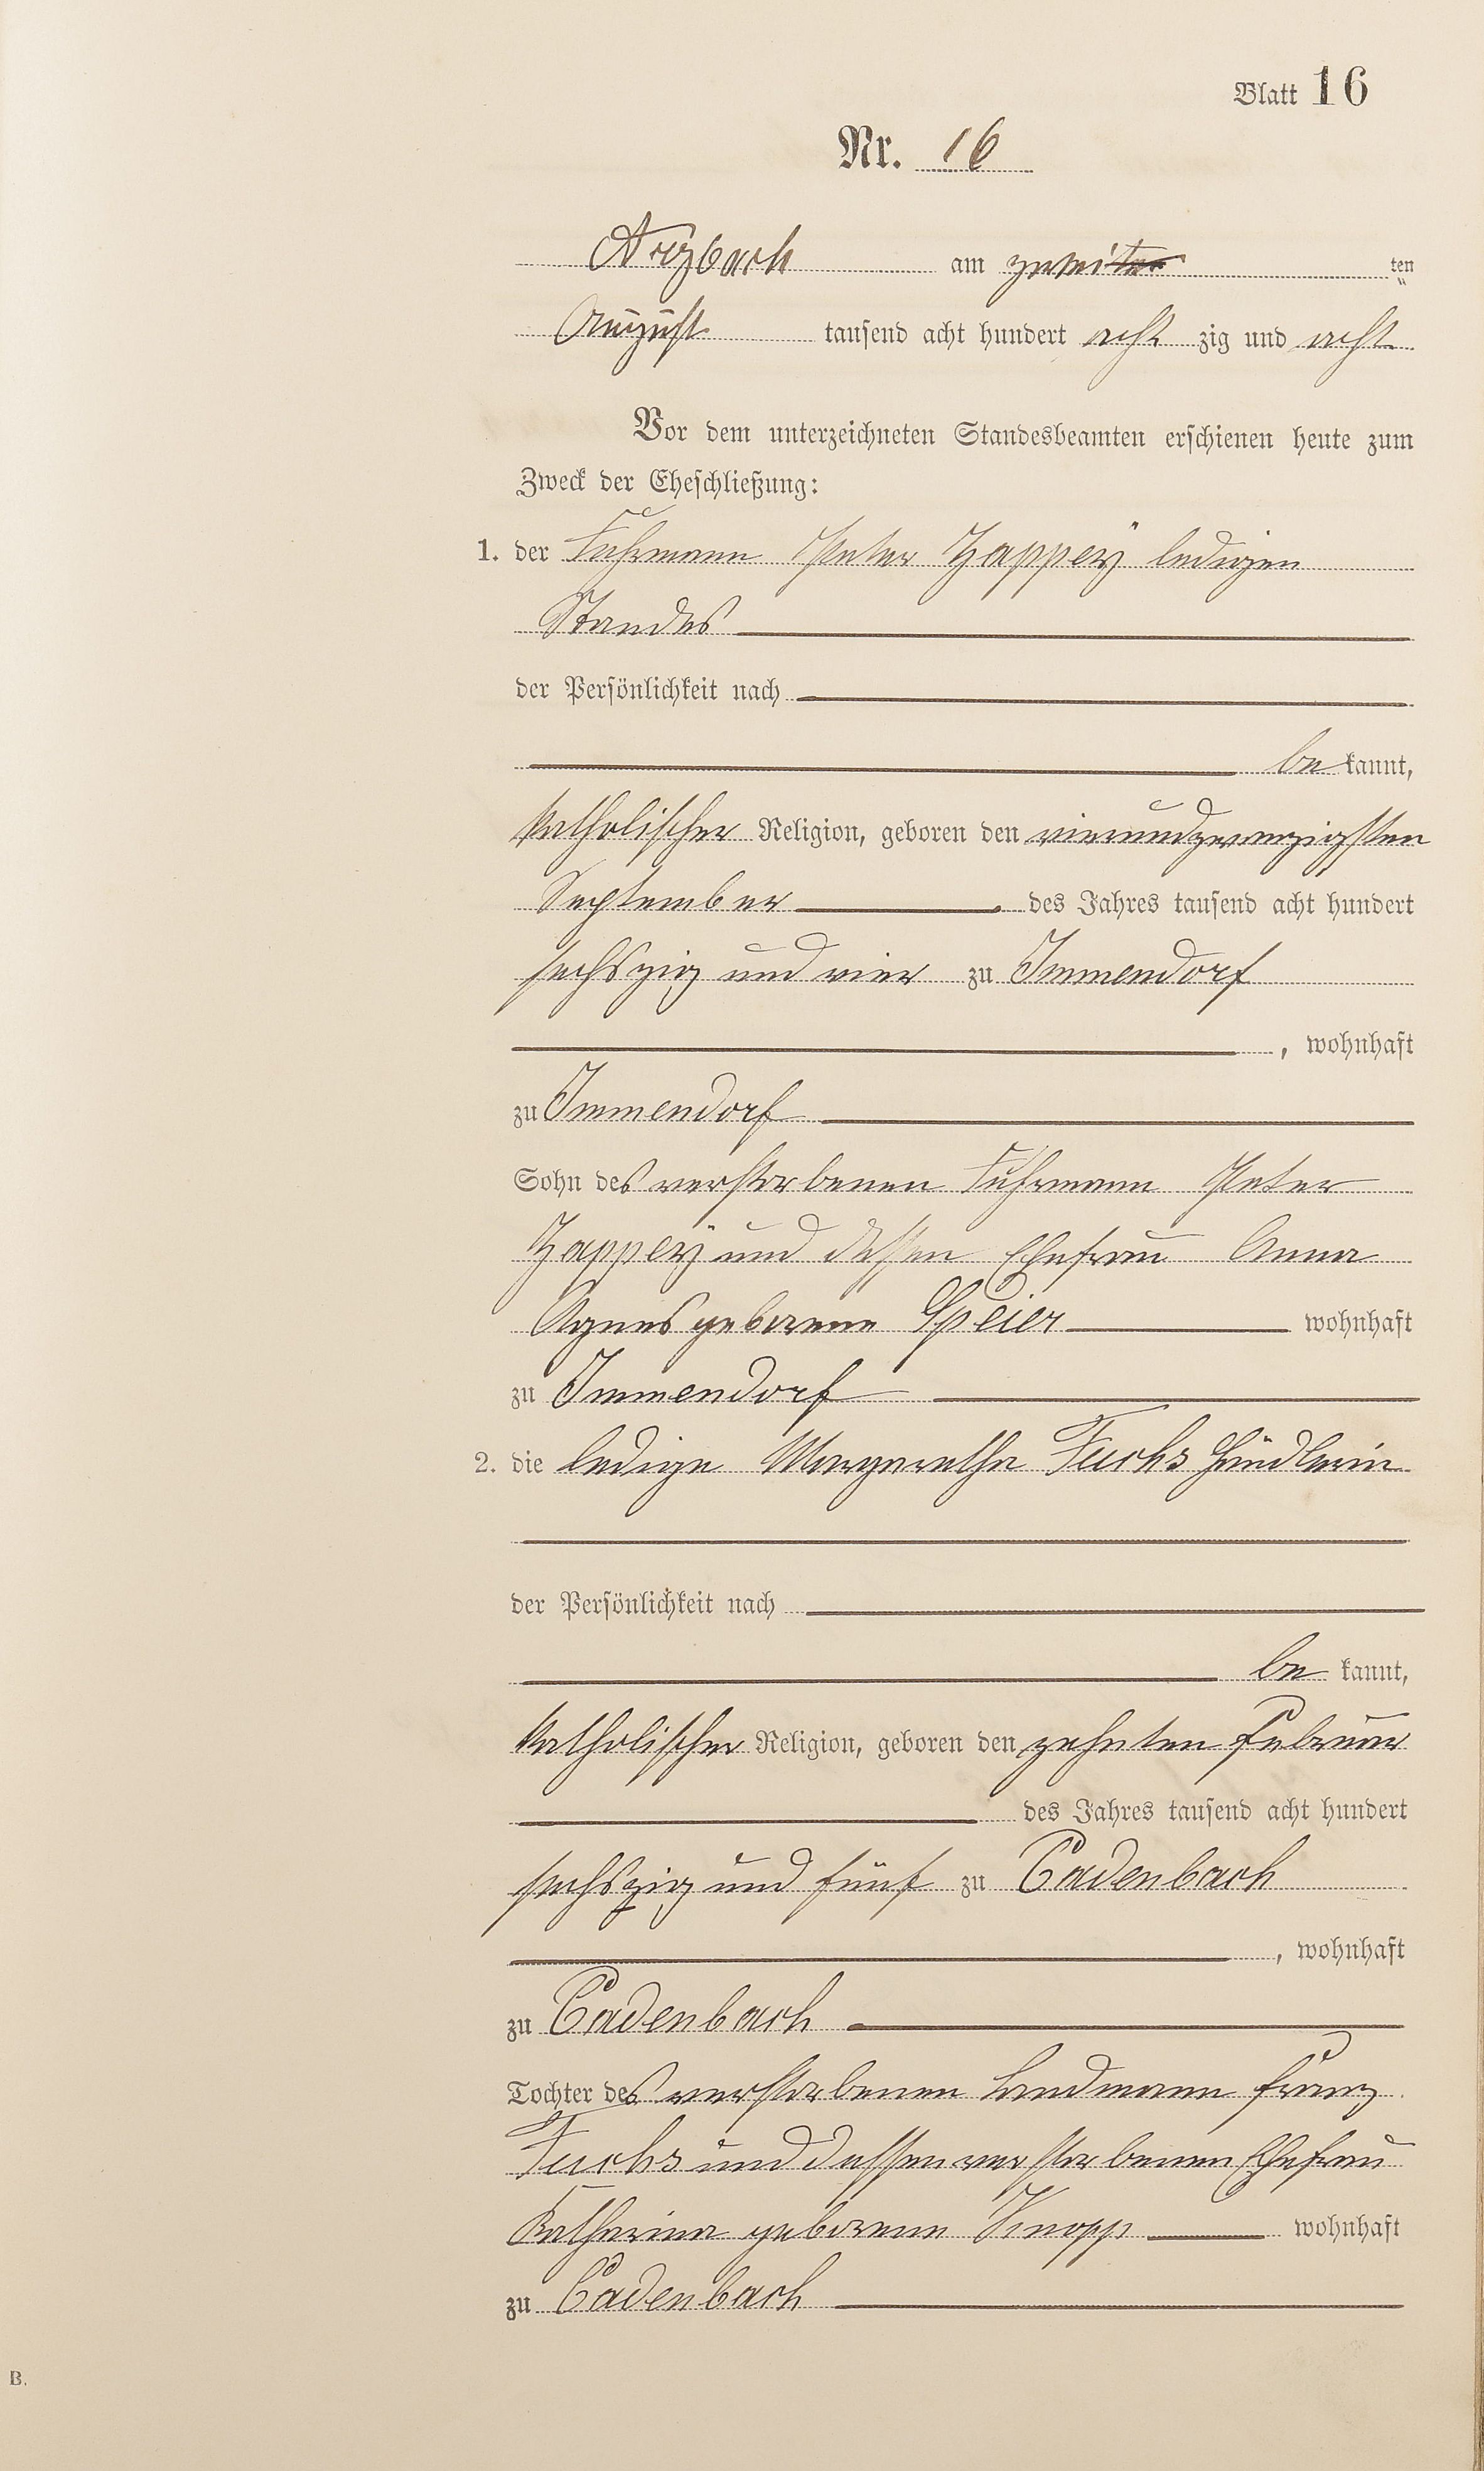 Blatt 16
Nr. 16
Arzbach am zweiten ten
August tausend acht hundert acht zig und acht
Vor dem unterzeichneten Standesbeamten erschienen heute zum
Zweck der Eheschließung:
1. der Fuhrmann Peter Zappeÿ ledigen
Standes
der Persönlichkeit nach
be kannt,
katholischer Religion, geboren den vierundzwanzigsten
September des Jahres tausend acht hundert
sechszig und vier zu Immendorf
, wohnhaft
zu Immendorf
Sohn des verstorbenen Fuhrmann Peter
Zappeÿ und dessen Ehefrau Anna
Agnes geborene Speier wohnhaft
zu Immendorf
2. die ledige Margaretha Fuchs Händlerin
der Persönlichkeit nach
be kannt,
katholischer Religion, geboren den zehnten Februar
des Jahres tausend acht hundert
sechszig und fünf zu Cadenbach
, wohnhaft
zu Cadenbach
Tochter des verstorbenen Landmann Franz
Fuchs und dessen verstorbenen Ehefrau
Katharina geborene Knopp wohnhaft
zu Cadenbach
B.